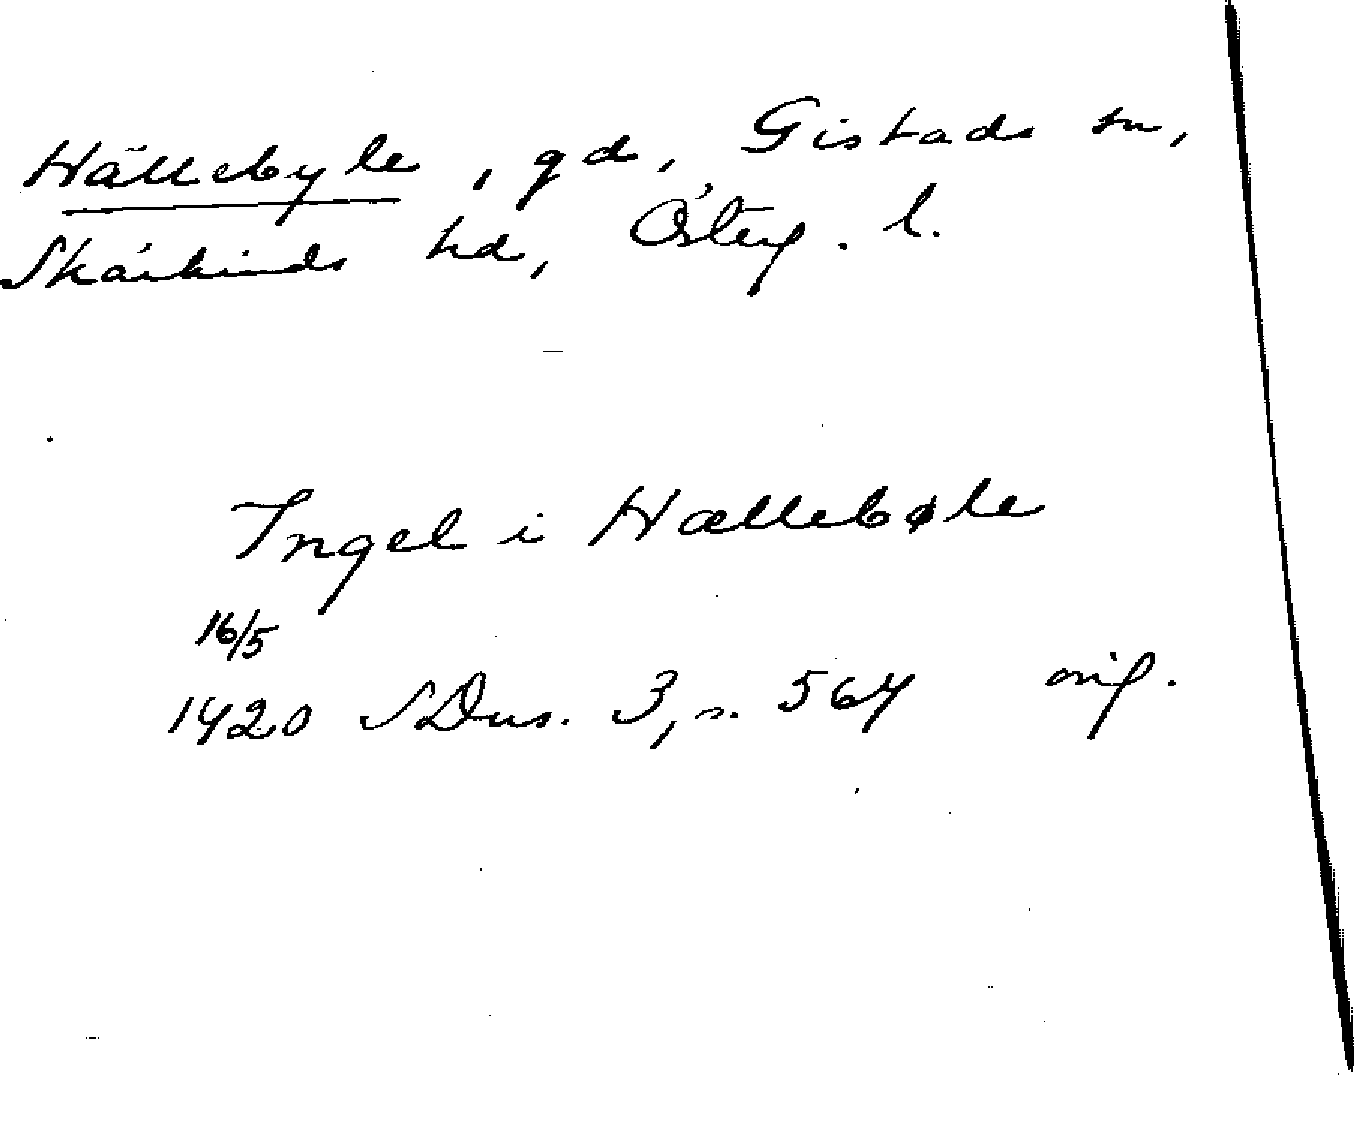 Hällebyle, gd, Gistads sn,
Skärkinds hd, Österg. l.
Ingel i Hællebøle
16/5
1420 SDns. 3, s. 564 orig.